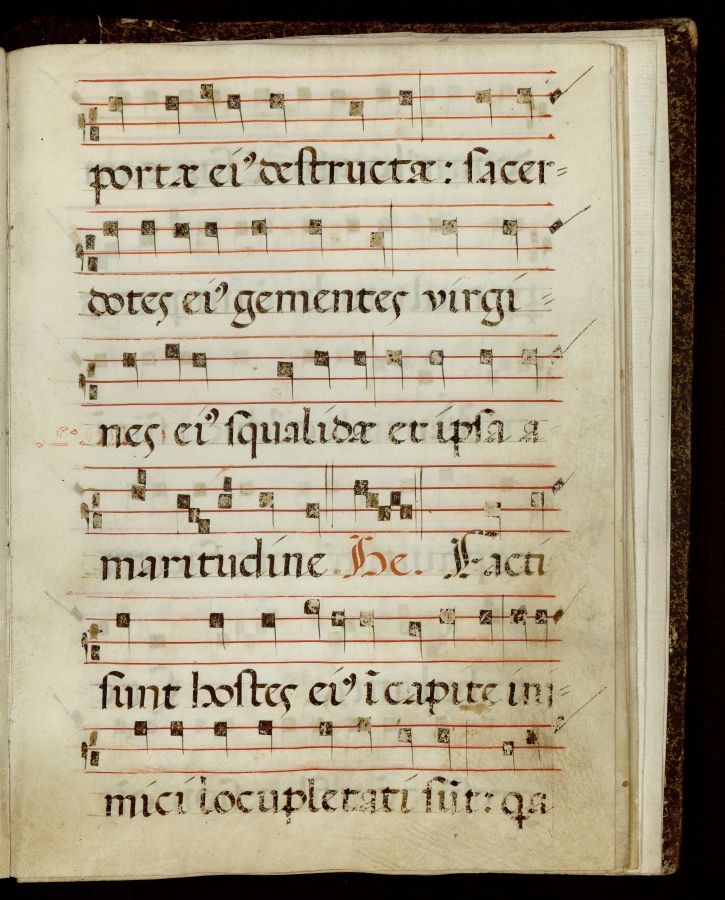 portæ eiꝰ destructæ: sacer=
dotes eiꝰ gementes virgi=
nes eiꝰ squalidæ et ipsa a
maritudine. He. Facti
sunt hostes eiꝰ ī capite ini=
mici locupletati sūt: qa